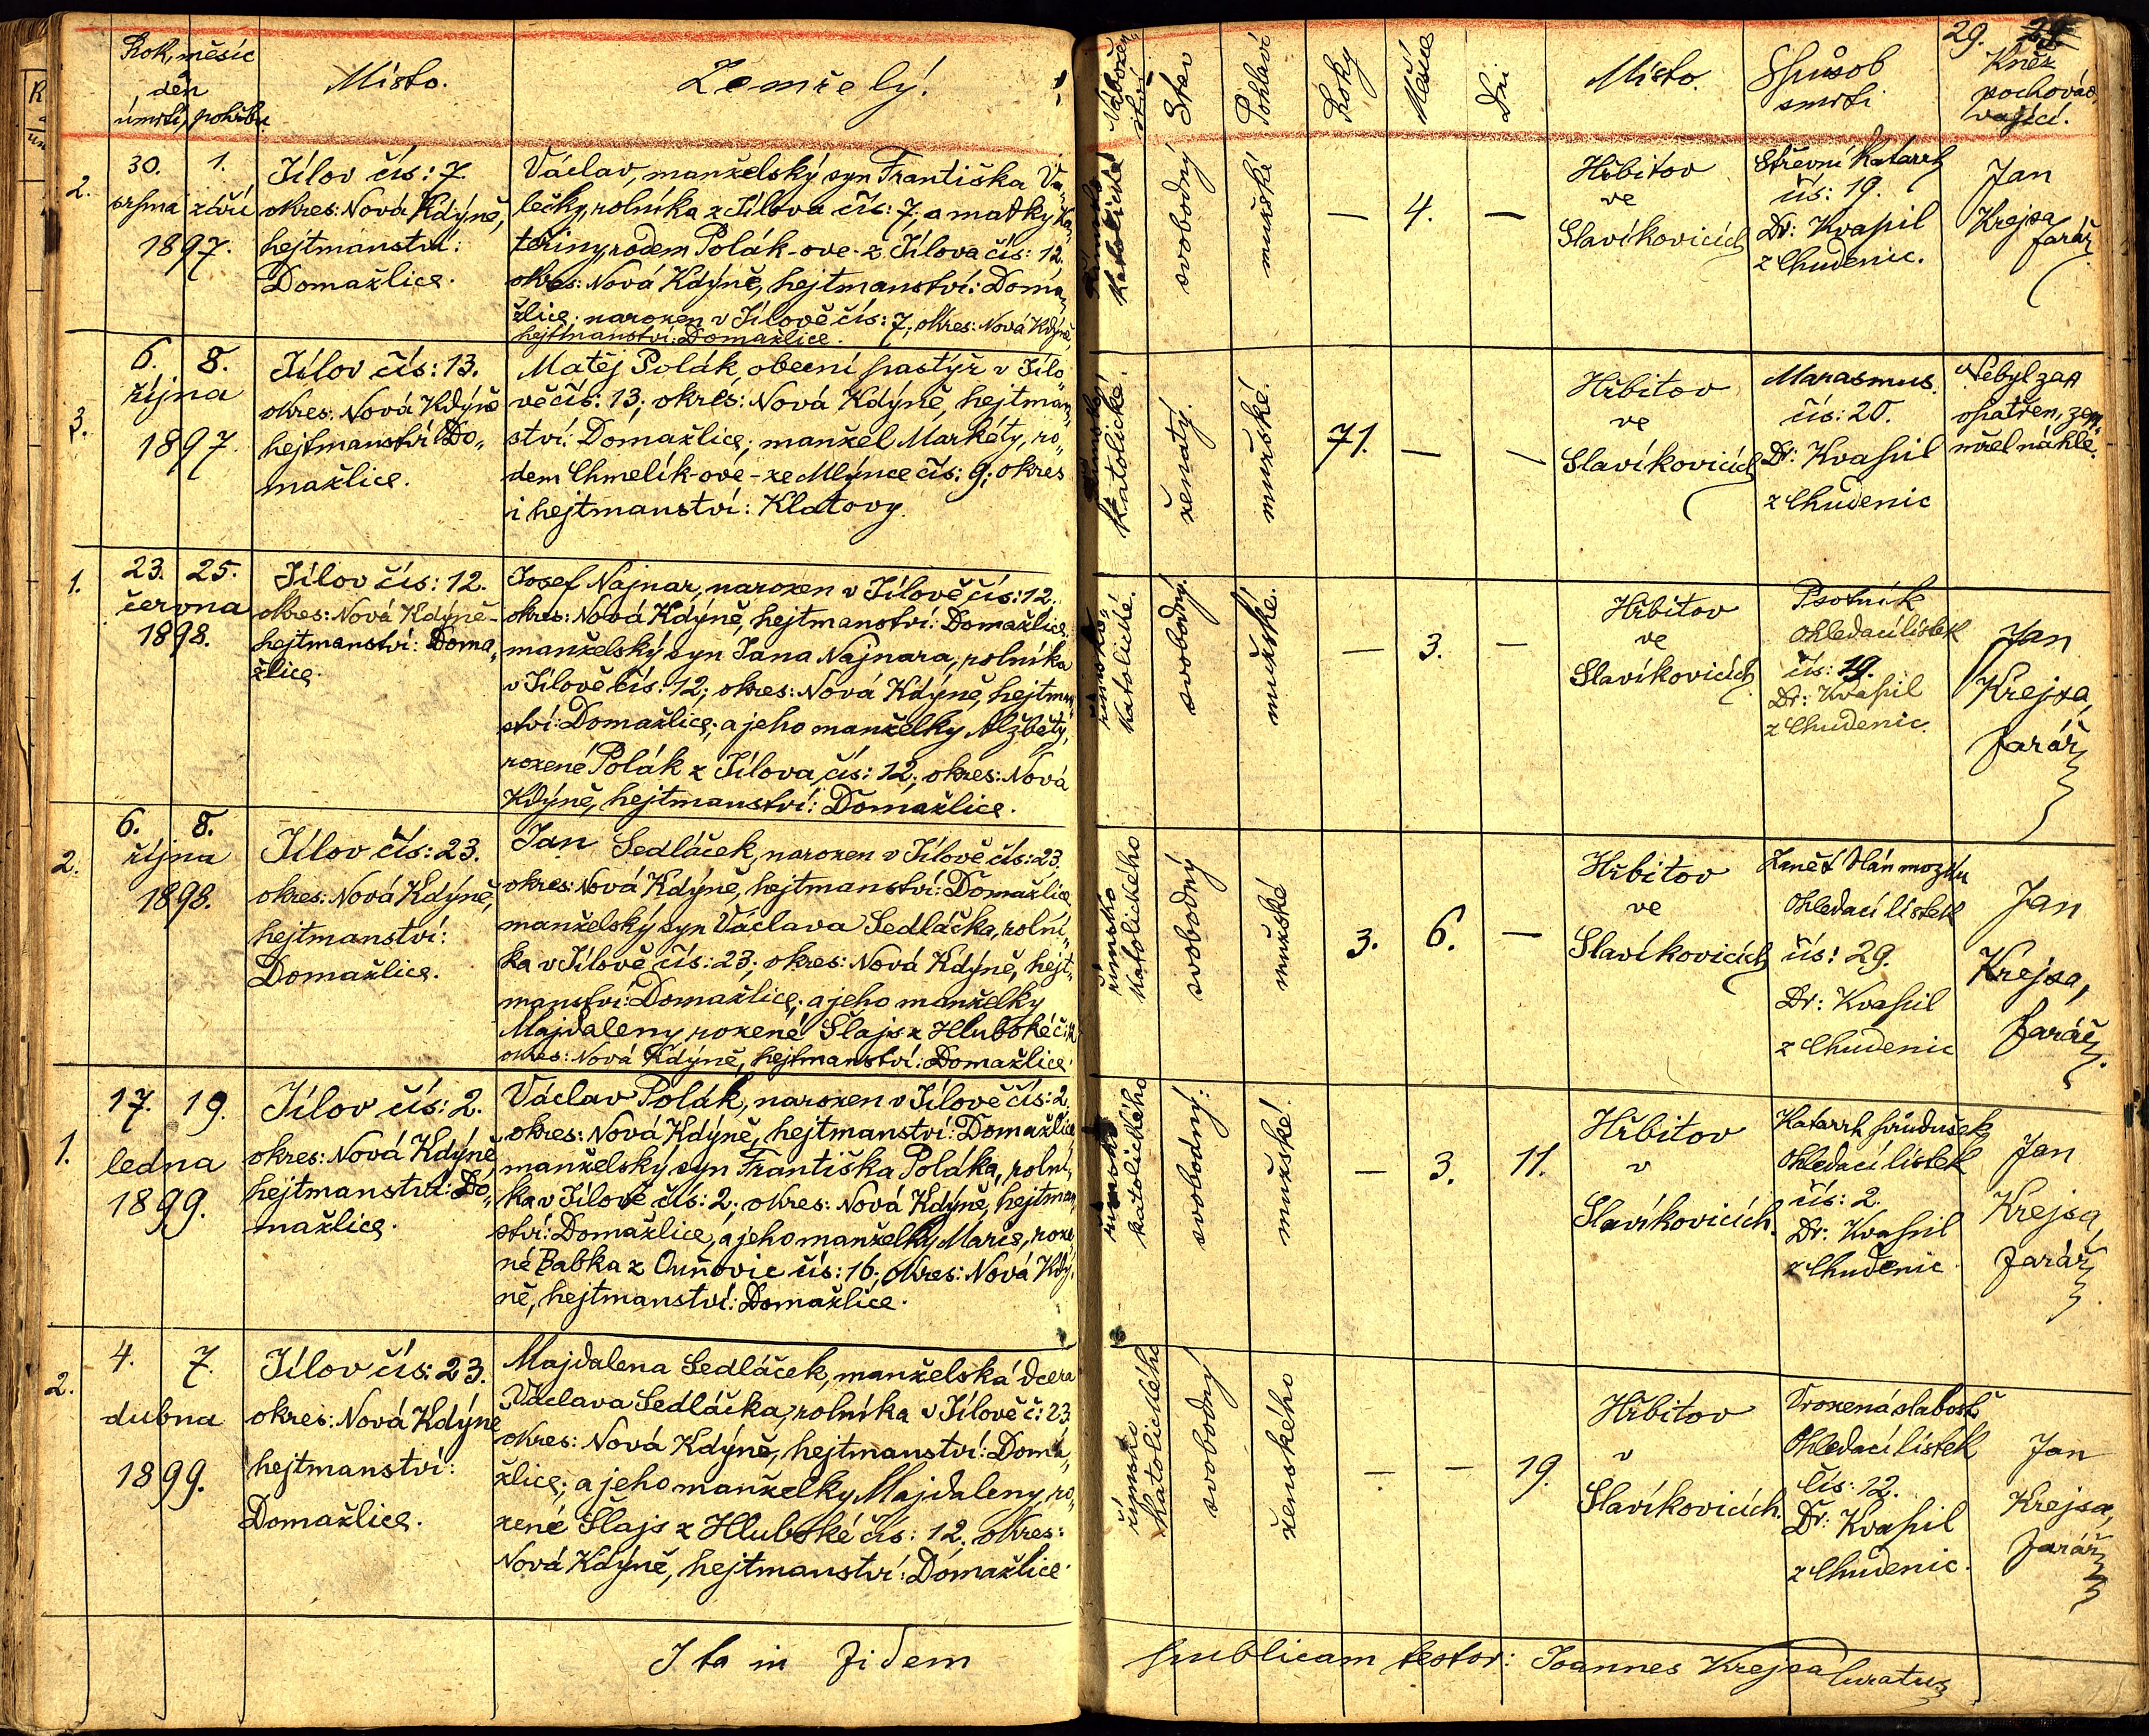 Rok, měsíc
den
úmrtí, pohřbu.
Místo.
Zemřelý.
Nábožen„
ství
Stav
Pohlaví
Roky
Měsíce
Dni
Místo.
Spůsob
smrti
29.
Kněz
pochová„
vající.
2.
30. 1.
srpna září
1897.
Jílov čís: 7.
okres: Nová Kdýně,
hejtmanství:
Domažlice.
Václav, manželský syn Františka Va„
lečky, rolníka z Jílova čís: 7; a matky Ka„
teřiny, rodem Polák-ove- z Jílova čís: 12.
okres: Nová Kdýně, hejtmanství: Doma„
žlice; narozen v Jílově čís: 7; okres: Nová Kdýně,
hejtmanství: Domažlice.
římsko
katolické
svobodný
mužské
— 4. —
Hřbitov
ve
Slavíkovicích
Střevní Katarrh
čís: 19.
Dr: Kvapil
z Chudenic.
Jan
Krejsa
farář
3.
6. 8.
října
1897.
Jílov čís: 13.
okres: Nová Kdýně
hejtmanství Do„
mažlice.
Matěj Polák obecní pastýř v Jílo„
vě čís: 13; okres: Nová Kdýně, hejtman„
ství: Domažlice; manžel Markéty, ro„
dem Chmelík-ove- ze Mlýnce čís: 9; okres
i hejtmanství: Klatovy.
římsko
katolické.
ženatý.
mužské.
71. — —
Hřbitov
ve
Slavíkovicích
Marasmus.
čís: 20.
Dr: Kvapil
z Chudenic
Nebyl za„
opatřen, zem„
řel náhle.
1.
23. 25.
června
1898.
Jílov čís: 12.
okres: Nová Kdýně-
hejtmanství: Doma„
žlice.
Josef Najnar, narozen v Jílově čís: 12.
okres: Nová Kdýně, hejtmanství: Domažlice.
manželský syn Jana Najnara, rolníka
v Jílově čís: 12; okres: Nová Kdýně, hejtman„
ství: Domažlice; a jeho manželky Alžběty,
rozené Polák z Jílova čís: 12; okres: Nová
Kdýně, hejtmanství: Domažlice.
římsko„
katolické.
svobodný.
mužské.
— 3. —
Hřbitov
ve
Slavíkovicích
Psotník
Ohledací lístek
čís: 19.
Dr: Kvapil
z Chudenic.
Jan
Krejsa,
farář
2.
6. 8.
října
1898.
Jílov čís: 23.
okres: Nová Kdýně,
hejtmanství:
Domažlice.
Jan Sedláček, narozen v Jílově čís: 23,
okres: Nová Kdýně, hejtmanství: Domažlice.
manželský syn Václava Sedláčka, rolní„
ka v Jílově čís: 23; okres: Nová Kdýně, hejt„
manství: Domažlice; a jeho manželky
Majdaleny, rozené Šlajs z Hluboké č: 12
okres: Nová Kdýně, hejtmanství: Domažlice.
římsko
katolického
svobodný
mužské
3. 6. —
Hřbitov
ve
Slavíkovicích
Zánět blán mozku
Ohledací lístek
čís: 29.
Dr: Kvapil
z Chudenic
Jan
Krejsa,
farář
1.
17. 19.
ledna
1899.
Jílov čís: 2.
okres: Nová Kdýně
hejtmanství: Do„
mažlice.
Václav Polák, narozen v Jílově čís: 2,
okres: Nová Kdýně, hejtmanství: Domažlice,
manželský syn Františka Poláka, rolní„
ka v Jílově čís: 2; okres: Nová Kdýně, hejtman„
ství: Domažlice, a jeho manželky Marie, roze„
né Babka z Ouňovic čís: 16; okres: Nová Kdý„
ně, hejtmanství: Domažlice.
římsko
katolického
svobodný.
mužské.
— 3. 11.
Hřbitov
v
Slavíkovicích.
Katarrh průdušek
Ohledací lístek
čís: 2.
Dr: Kvapil
z Chudenic
Jan
Krejsa,
farář
2.
4. 7.
dubna
1899.
Jílov čís: 23.
okres: Nová Kdýně
hejtmanství:
Domažlice.
Majdalena Sedláček, manželská dcera
Václava Sedláčka, rolníka v Jílově č: 23
okres: Nová Kdýně, hejtmanství: Doma„
žlice; a jeho manželky Majdaleny, ro„
zené Šlajs z Hluboké čís: 12; okres:
Nová Kdýně, hejtmanství: Domažlice.
římsko
katolického
svobodný
ženského
— — 19.
Hřbitov
v
Slavíkovicích.
Vrozená slabost
Ohledací lístek
čís: 12.
Dr: Kvapil
z Chudenic.
Jan
Krejsa,
farář
Ita in fidem publicam testor: Joannes Krejsa Curatus